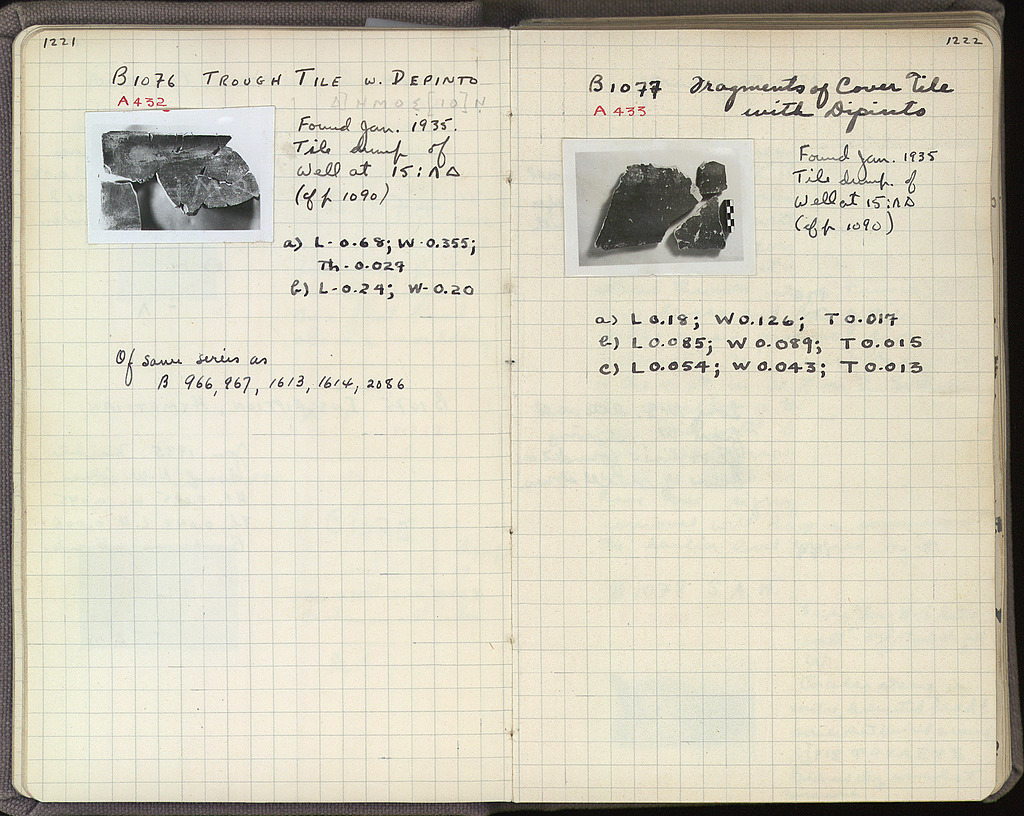 1221
B 1076 TROUGH TILE W. DEPINTO
A 432
Found Jan. 1935.
Tile dump of
Well at 15:ΛΔ
(cf p 1090)
a) L-0.68; W-0.355;
Th-0.029
b) L-0.24; W-0.20
Of same series as
B 966, 967, 1613, 1614, 2086
1222
B 1077 Fragments of Cover Tile
with Dipinto
A 433
Found Jan. 1935
Tile dump of
Well at 15:ΛΔ
(cf p 1090)
a) L 0.18; W 0.126; T 0.017
b) L 0.085; W 0.089; T 0.015
c) L 0.054; W 0.043; T 0.013